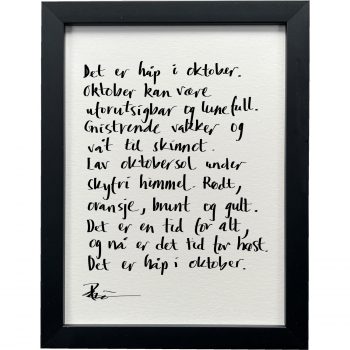 Det er håp i oktober.
Oktober kan være
uforutsigbar og lunefull.
Gnistrende vakker og
våt til skinnet.
Lav oktobersol under
skyfri himmel. Rødt,
oransje, brunt og gult.
Det er en tid for alt,
og nå er det tid for høst.
Det er håp i oktober.